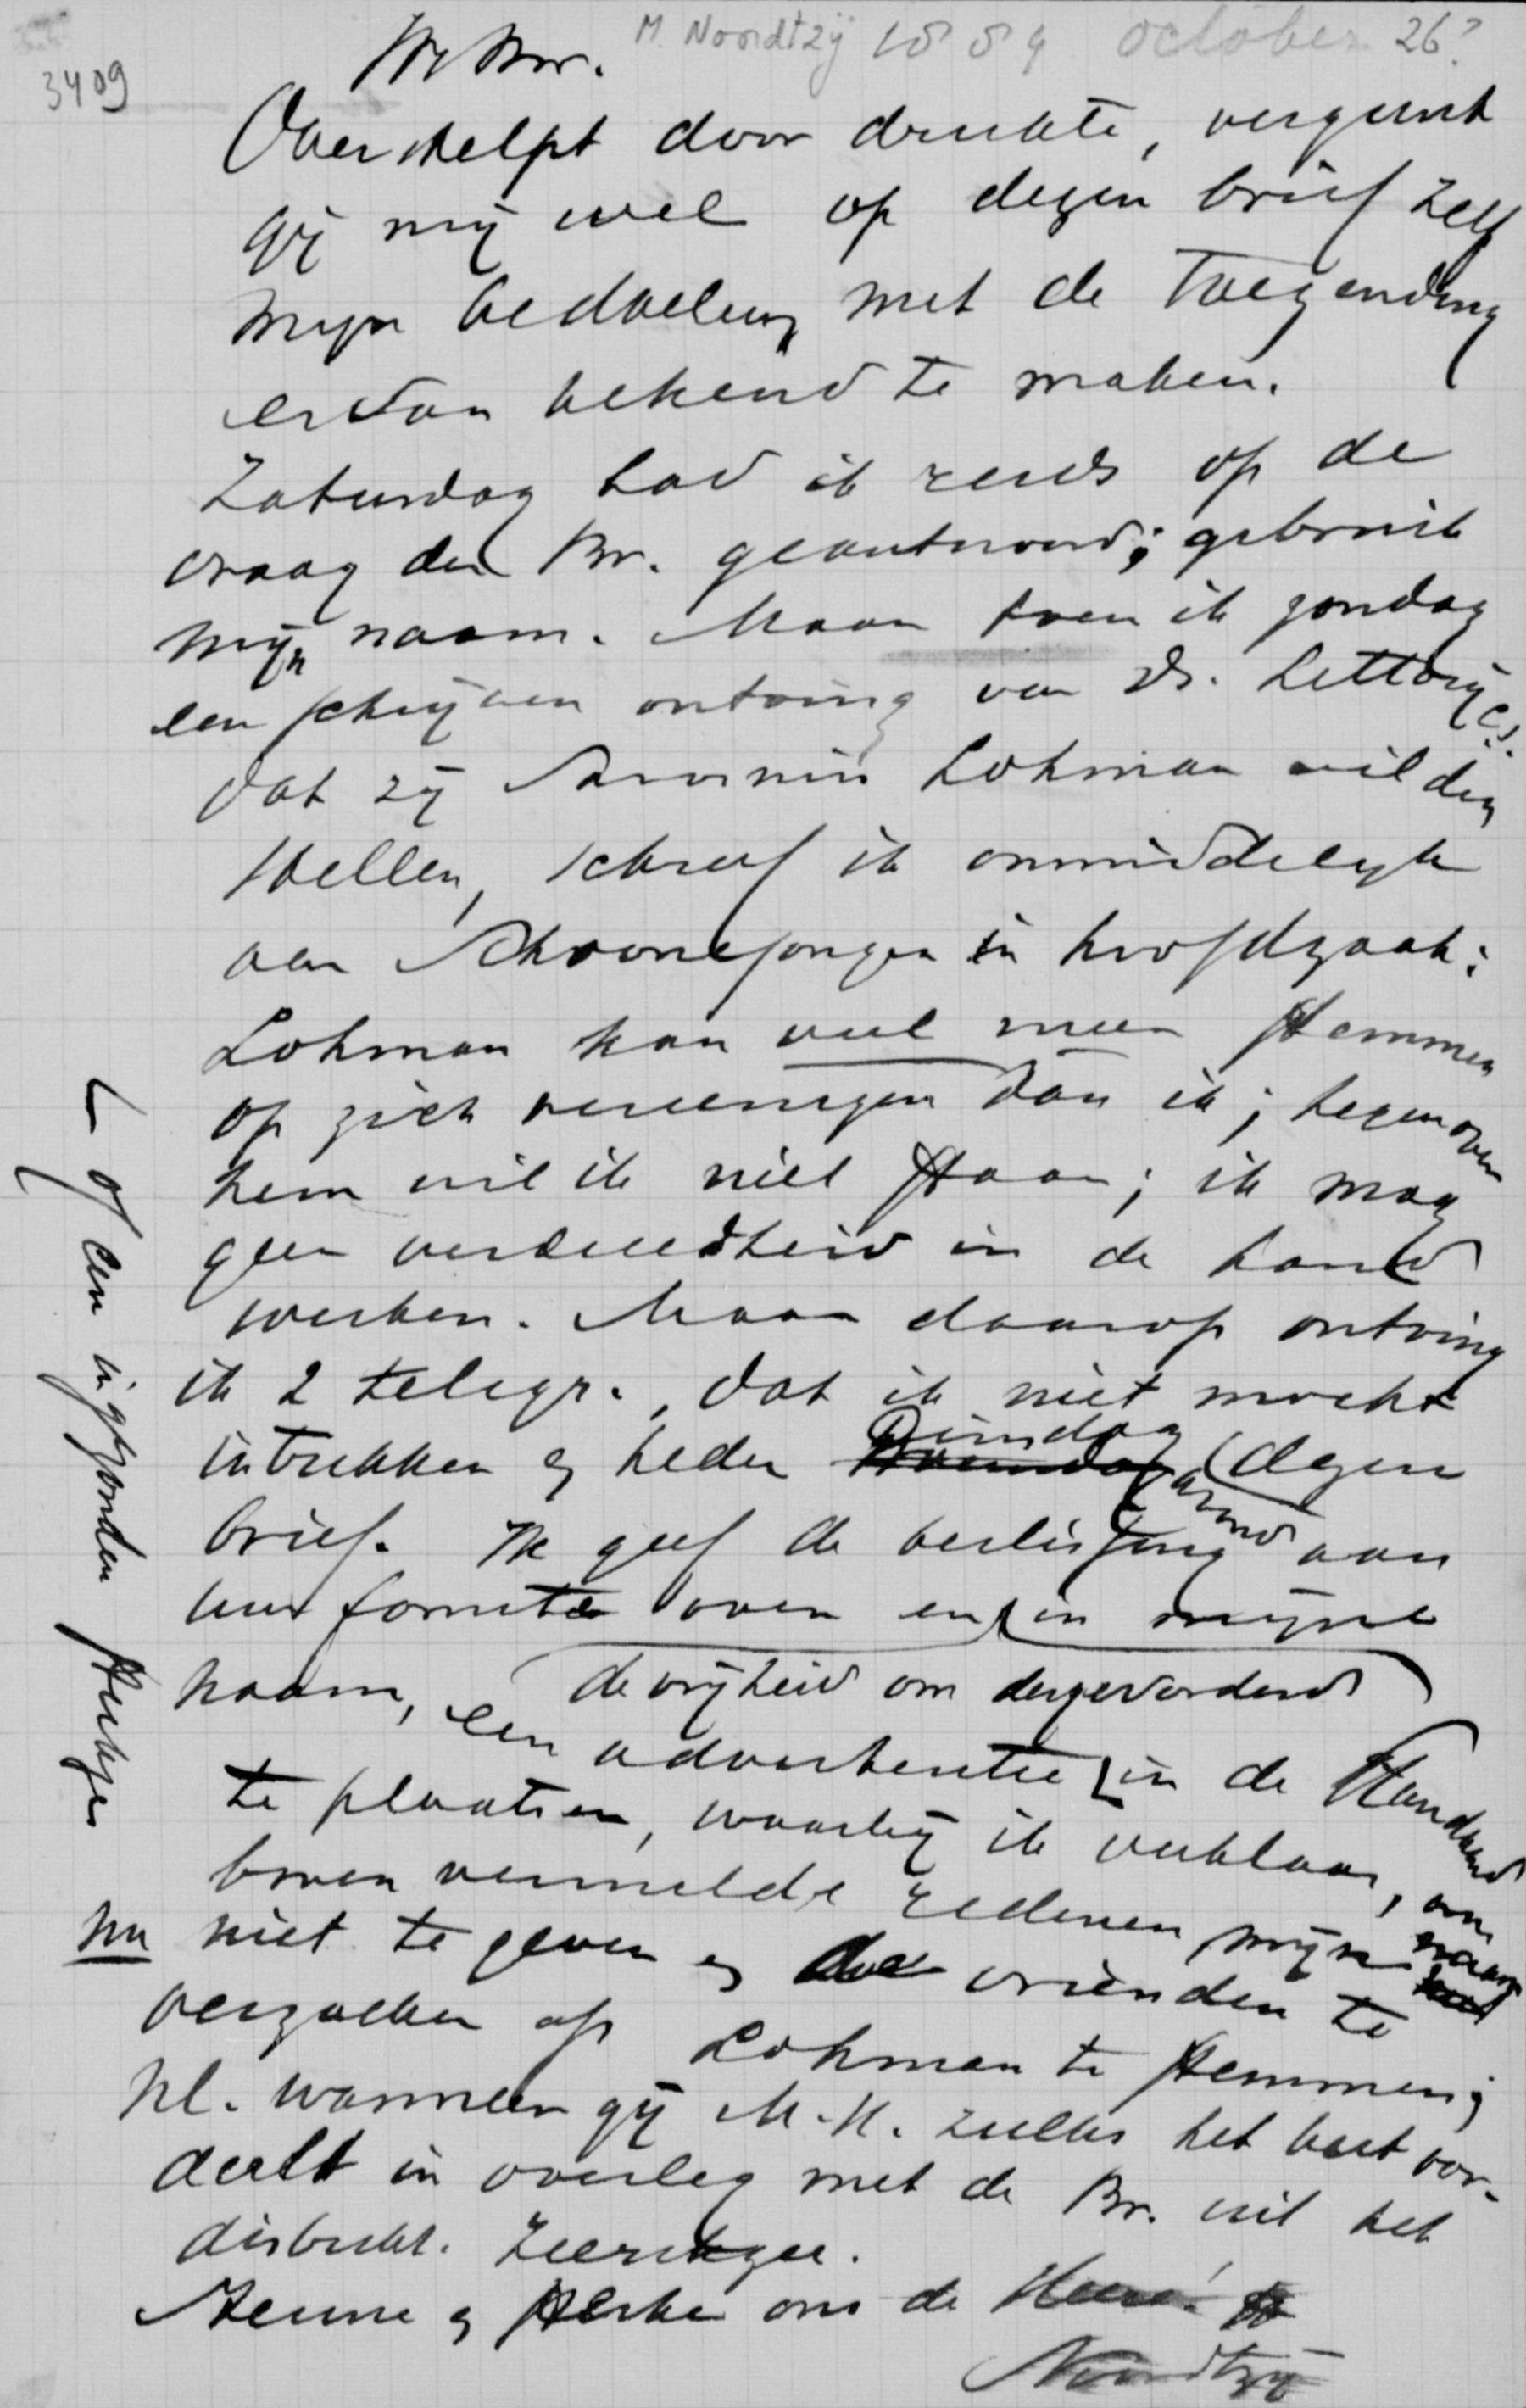 M. Noordtzij 1889 october 26?
3409
W. Br.
Overstelpt door drukte, vergunt
gij mij wel op dezen brief zelf
mijn bedoeling met de toezending
ervan bekend te maken.
Zaturdag had ik reeds op de
vraag der Br. geantwoord; gebruik
mijn naam. Maar toen ik zondag
een schrijven ontving van Ds. Littooij c.s.
dat zij Savornin Lohman wilden
stellen, schreef ik onmiddelijk
aan Schoonejongen in hoofdzaak:
Lohman kan veel meer stemmen
op zich vereenigen dan ik; tegenover
hem wil ik niet staan; ik mag
geen verdeeldheid in de hand
werken. Maar daarop ontving
ik 2 telegr., dat ik niet mocht
intrekken en heden Dinsdag avond dezen
brief. Ik geef de beslissing aan
uw comité over en in mijne
naam, de vrijheid om desgevorderd
een advertentie in de Standaard
te plaatsen, waarbij ik verklaar, om
boven vermelde redenen mijn naam
nu niet te geven en de vrienden te
verzoeken op Lohman te stemmen;
nl. wanneer gij M.H. zulks het best oor-
deelt in overleg met de Br. uit het
district Zierikzee.
Steune en sterke ons de Heere!
Noordtzij
of een ingezonden stukje